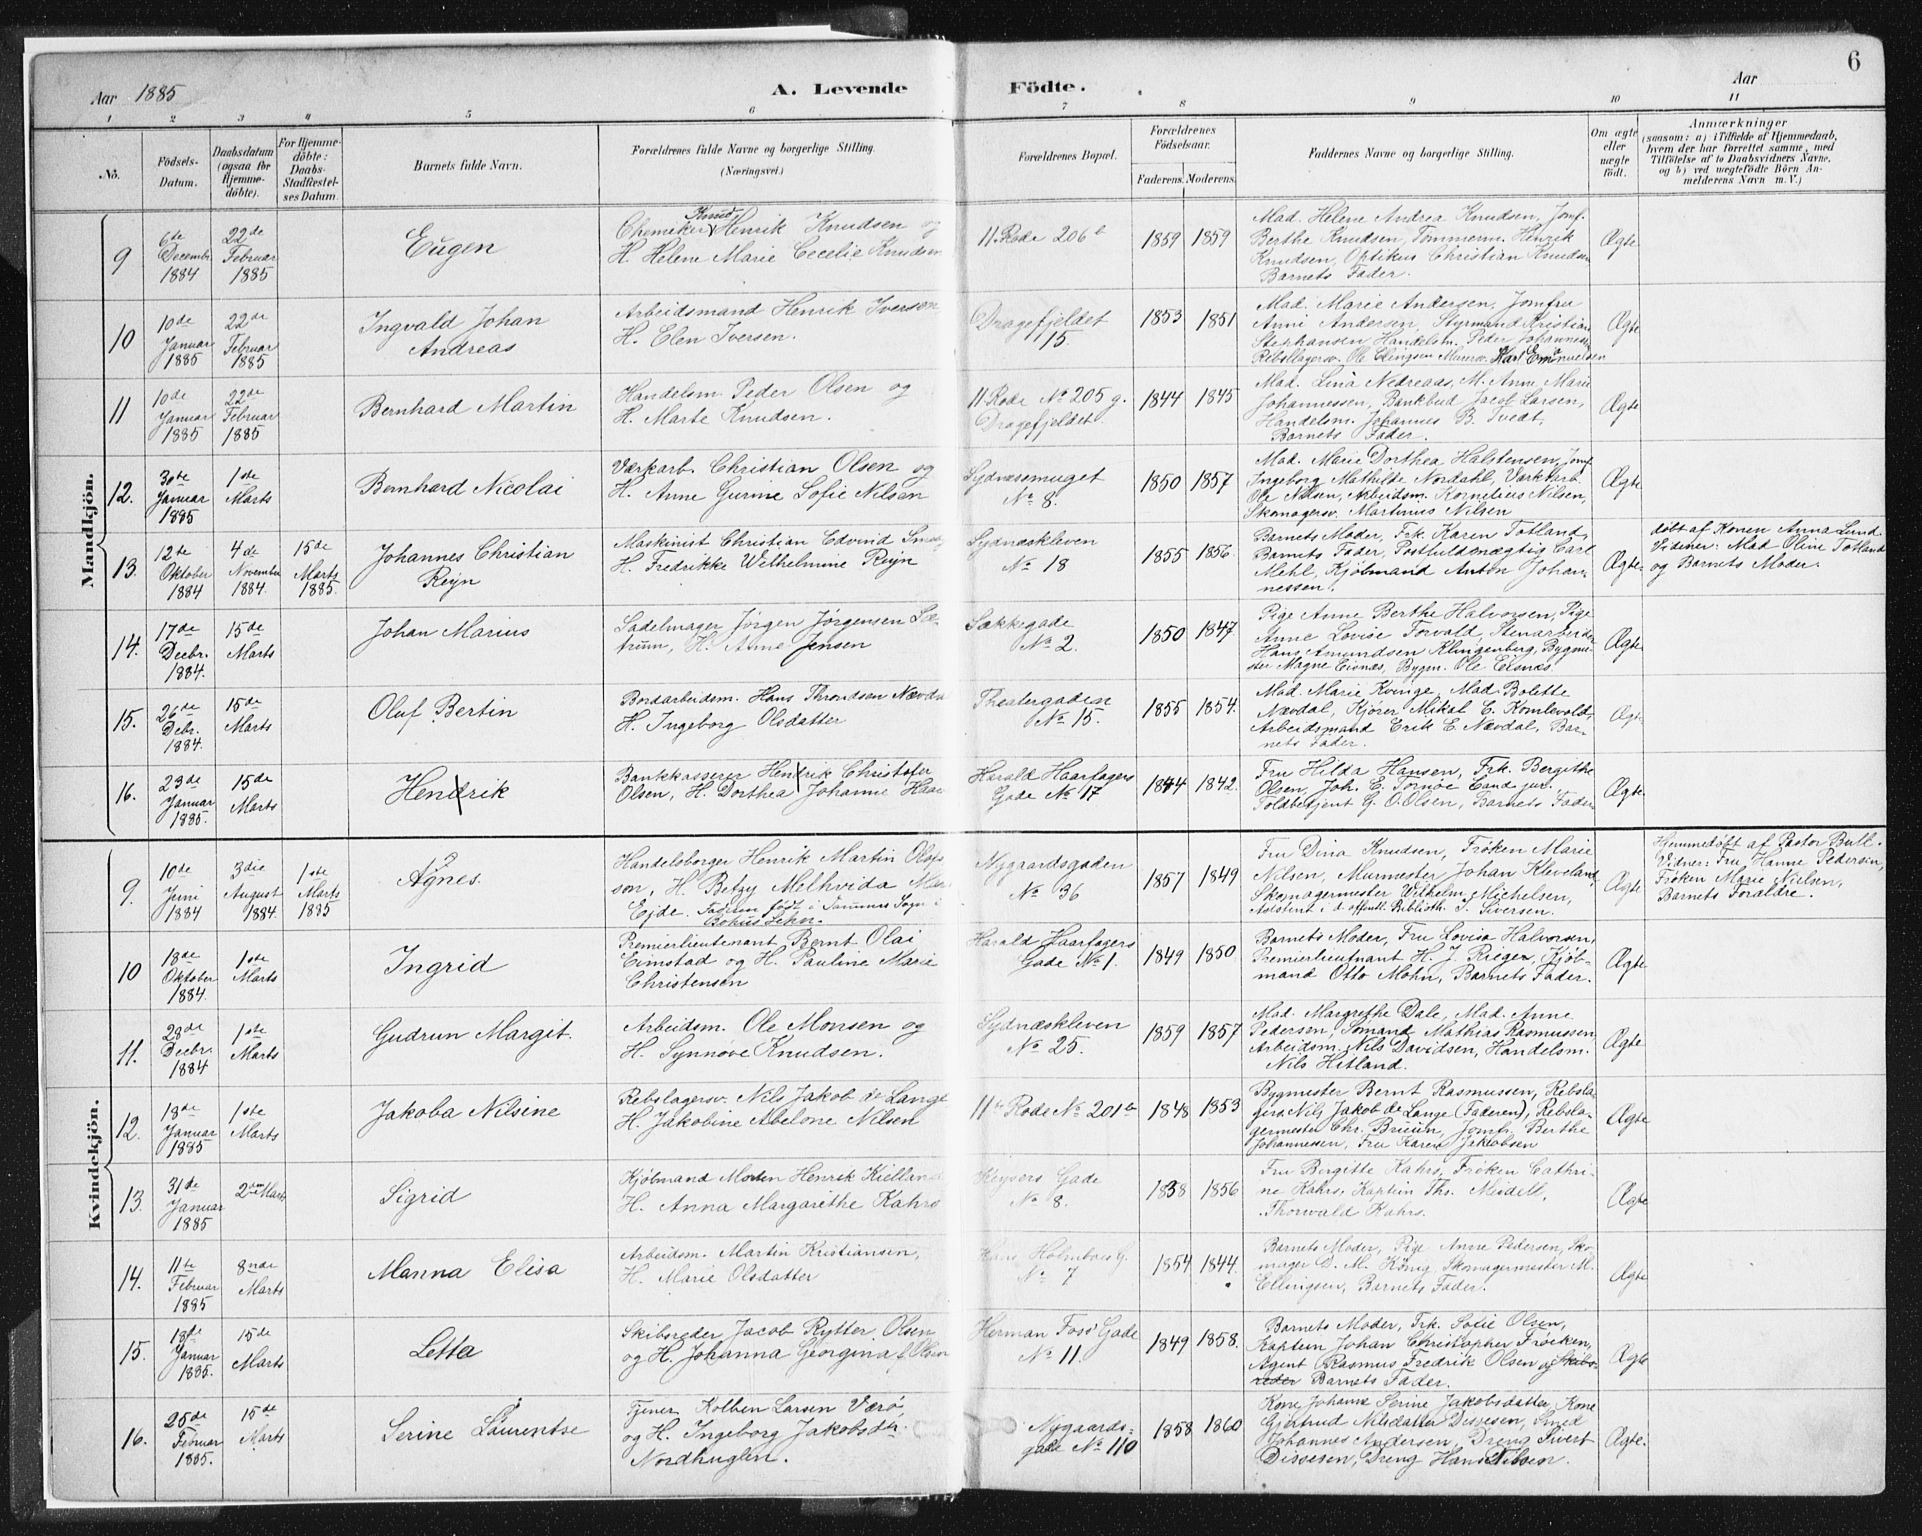 Aar 1885
A. Levende Födte.
Aar
6
1 2 3 4 5 6 7 8 9 10 11
No.
Födsels-Datum.
Daabsdatum (ogsaa for Hjemmedöbte).
For Hjemmedöbte: Daabs-Stadfæstelses Datum.
Barnets fulde Navn.
Forældrenes fulde Navne og borgerlige Stilling. (Næringsvei.)
Forældrenes Bopæl.
Forældrenes Födselsaar.
Faderens. Moderens.
Faddernes Navne og borgerlige Stilling.
Om ægte eller uægte födt.
Anmærkninger
(saasom: a) i Tilfælde af Hjemmedaab, hvem der har forrettet samme, med Tilföielse af to Daabsvidners Navne, og b) ved uægtefödte Börn Anmelderens Navn m. V.)
Mandkjön.
9 6te Decembr 1884 22de Februar 1885
Eugen
Chemiker Knud Henrik Knudsen og
H. Helene Marie Cecelie Knudsen
11. Rode 206 b
1859 1859
Mad. Helene Andrea Knudsen, Jomf.
Berthe Knudsen, Tømmerm. Henrik
Knudsen, Optikus Christian Knudsen
Barnets Fader.
Ægte
10 10de Januar 1885 22de Februar 1885
Ingvald Johan
Andreas
Arbeidsmand Henrik Iversen
H. Elen Iversen.
Dragefjeldet
15
1853 1851
Mad. Marie Andersen, Jomfru
Anne Andersen, Styrmand Kristian
Stephansen, Handelsm. Peder Johannessen
Rebslagersv. Ole Ellingsen Murersv. Karl Emanuelsen
Ægte
11 10de Januar 1885 22de Februar 1885
Bernhard Martin
Handelsm. Peder Olsen og
H. Marte Knudsen.
11 Rode No 205 g.
Dragefjeldet
1844 1845
Mad. Lina Nedreaas, M. Anne Marie
Johannessen, Bankbud Jacob Larsen,
Handelsm. Johannes B. Tvedt,
Barnets Fader.
Ægte
12. 3die Januar 1885 1ste Marts
Bernhard Nicolai
Værkarb. Christian Olsen og
H. Anne Gurine Sofie Nilsen
Sydnæssmuget
No 8.
1850 1857
Mad. Marie Dorthea Halstensen, Jomf.
Ingeborg Mathilde Nordahl, Værkarb.
Ole Nilsen, Arbeidsm. Kornelius Nilsen,
Skomagersv. Martinus Nilsen
Ægte
13. 12te Oktober 1884 4de November 1884. 15de Marts 1885.
Johannes Christian
Reijn
Maskinist Christian Edvind
H. Fredrikke Wilhelmine Reijn
Sydnæskleven
No 18
1855 1856.
Barnets Moder, Frk. Karen Totland,
Barnets Fader, Postfuldmægtig Carl
Mehl, Kjøbmand Anton Johan-
nessen.
Ægte
døbt af Konen Anna Lund.
Vidner: Mad Oline Totland
og Barnets Moder.
14. 17de Decbr. 1884. 15de Marts
Johan Marius
Sadelmager Jørgen Jørgensen Sæ-
truun, H. Anne Jensen
Sækkegade
No 2.
1850 1847.
Pige Anne Berthe Halvorsen, Pige
Anne Lovise Torvald, Stenarbeider
Hans Amundsen Klingenberg, Bygme-
ster Magne Eisnæs, Bygm. Ole Eisnæs.
Ægte
15. 26de Debr. 1884. 15de Marts
Oluf Bertin
Bordarbeidsm. Hans Throndsen Nævdal
H. Ingeborg Olsdatter
Theatergaden
No 15.
1855 1854.
Mad. Marie Kvinge, Mad. Bolette
Nævdal, Kjører Mikal E. Komlevold,
Arbeidsmand Erik E. Nævdal, Bar-
nets Fader.
Ægte
16. 23de Januar 1885. 15de Marts
Hendrik
Bankkasserer Hendrik Christofer
Olsen, H. Dorthea Johanne
Harald Haarfagers
Gade No 17
1844 1842.
Fru Hilda Hansen, Frk. Bergithe
Olsen, Joh. E. Tornøe Cand. jur.
Toldbetjent G. O. Olsen, Barnets Fader
Ægte
Kvindekjön.
9. 10de Juni 1884 3die August 1884. 1ste Marts 1885
Agnes.
Handelsborger Henrik Martin Olofs
son, H. Betzy Methvida
Ejde. Faderen født i Tanums Sogn i
Bohus Lehn.
Nygaardsgaden
No 36
1857 1849
Fru Dina Knudsen, Frøken Marie
Nilsen, Murmester Johan Kleveland,
Skomagermester Wilhelm Michelsen,
Assistent i d. offentl. Biblioth. J. Siversen.
Ægte
Hjemmedøbt af Pastor Bull.
Vidner: Fru Hanne Pedersen,
Frøken Marie Nielsen,
Barnets Forældre.
10 18de Oktober 1884. 1ste Marts
Ingrid
Premierlieutenant Bernt Olai
Eimstad og H. Pauline Marie
Christensen
Harald Haarfagers
Gade No 1.
1849 1850.
Barnets Moder, Fru Lovise Halvorsen,
Premierlieutnant H. J. Rieger, Kjøb-
mand Otto Mohn, Barnets Fader.
Ægte
11. 28de Decbr. 1884 1ste Marts
Gudrun Margit.
Arbeidsm. Ole Monsen og
H. Synnøve Knudsen.
Sydnæskleven
No 25.
1859 1857
Mad. Margrethe Dale, Mad. Anne
Pedersen, Sømand Mathias Rasmussen
Arbeidsm. Nils Davidsen, Handelsm.
Nils Hitland.
Ægte
12. 18de Januar 1885 1ste Marts
Jakoba Nilsine
Rebslagersv. Nils Jakob de Lange
H. Jakobine Abelone Nilsen
11te Rode No 201 b
1848 1853
Bygmester Bernt Rasmussen, Rebsla-
gersv. Nils Jakob de Lange (Faderen), Rebsla-
germester Chr. Bruun, Jomfr. Berthe
Johannessen, Fru Karen Jakobsen
Ægte
13. 31de Januar 1885 2den Marts
Sigrid
Kjøbmand Morten Henrik Kielland
H. Anna Margarethe Kahrs
Keysers Gade
No 8.
1838 1856
Fru Birgitte Kahrs, Frøken Cathri-
ne Kahrs, Kaptein Ths. Meidell,
Thorwald Kahrs.
Ægte
14. 11te Februar 1885 8nde Marts
Manna Elisa
Arbeidsm. Martin Kristiansen,
H. Marie Olsdatter
Hans Holmboes G.
No 7
1854 1844.
Barnets Moder, Pige Anne Pedersen, Sko-
mager D. M. König, Skomagermester M.
Ellingsen, Barnets Fader.
Ægte
15. 18de Januar 1885. 15de Marts
Letta
Skibsreder Jacob Rytter Olsen
og H. Johanna Georgina f. Olsen
Herman Foss' Gade
No 11.
1849 1858.
Barnets Moder, Frk. Sofie Olsen,
Kaptein Johan Christopher Frøcken,
Agent Rasmus Fredrik Olsen og Skibs-
reder Barnets Fader.
Ægte
16. 25de Februar 1885. 15de Marts
Serine Laurentse
Tjener Kolben Larsen Værø,
og H. Ingeborg Jakobsdtr.
Nordhuglen.
Nygaards-
gade No 110
1858 1860
Kone Johanne Serine Jakobsdatter, Kone
Gjertrud Nilsdatter Dissesen, Smed
Johannes Andersen, Dreng Sivert
Dissesen, Dreng Hans Nilsen.
Ægte.